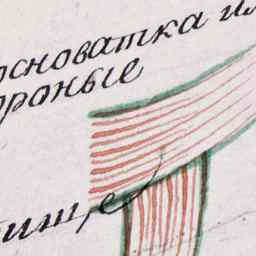 основатка и
роные
ище